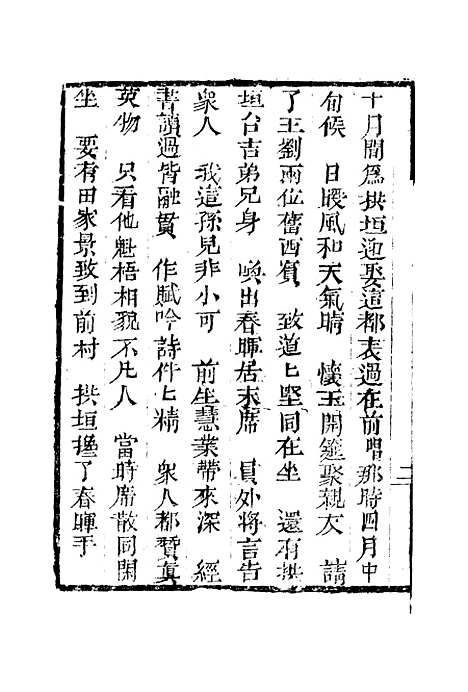 十月間爲拱垣迎娶這都表過在前喟那時四月中
旬候　日暖風和天氣晴　懷玉開筵聚親友　請
了王劉兩位舊西賓　致道匕堅同在坐　還有拱
垣台吉弟兄身　喚出春暉居末席　員外將言告
衆人　我這孫兒非小可　前坐慧業帶來深　經
書讀過皆融貫　作賦吟詩件匕精　衆人都贊眞
英物　只看他魁梧相貌不凡人　當時席散同閑
坐　要有田家景致到前村　拱垣攙了春暉手
二